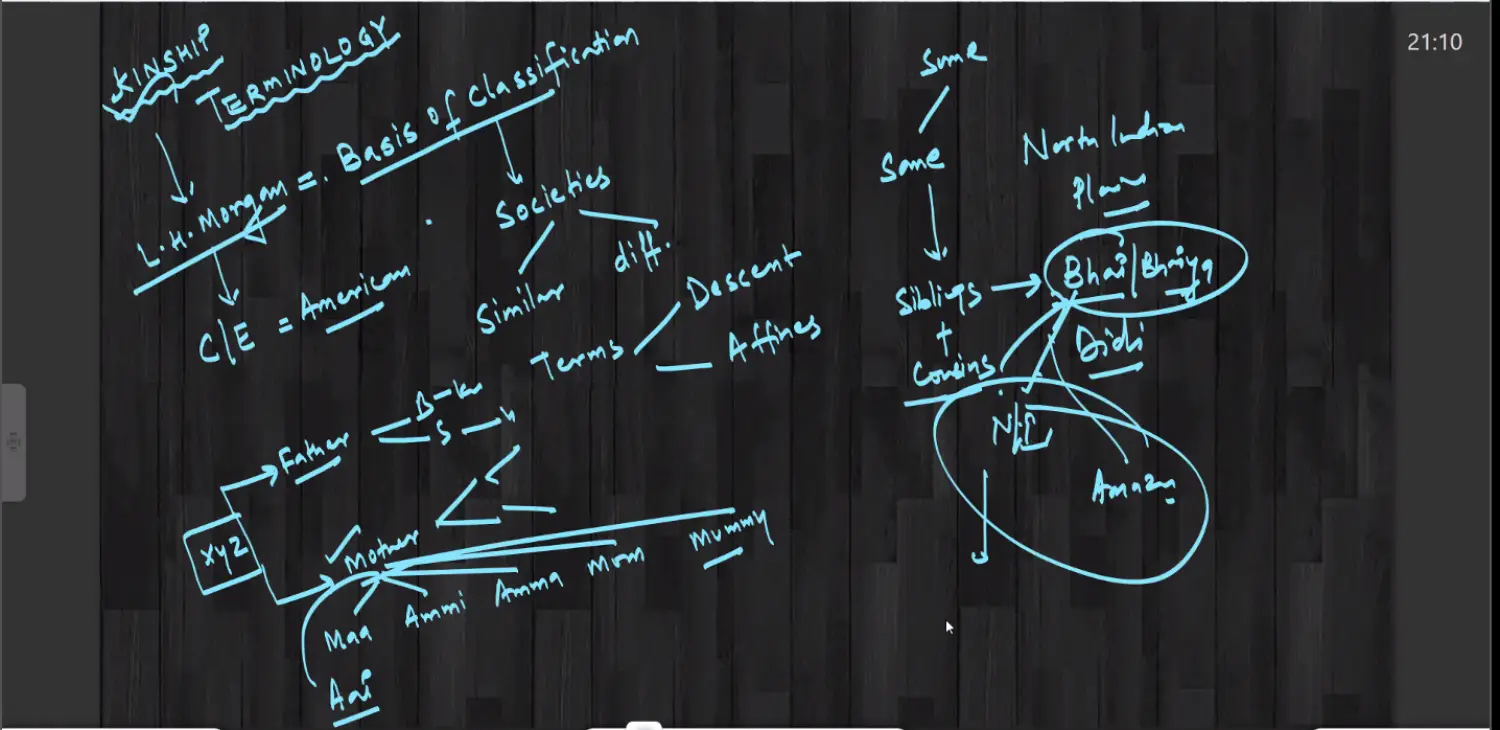 KINSHIP
TERMINOLOGY
L.H. Morgan =. Basis of Classification
C/E = American
Societies
Similar
diff.
Terms
Descent
Affines
xyz
Father
B
S
Mother
Maa
Ammi
Amma
Mom
Mummy
Aai
Same
Same
Siblings
+
Cousins
North Indian
Bhai/Bhaiya
Didi
21:10